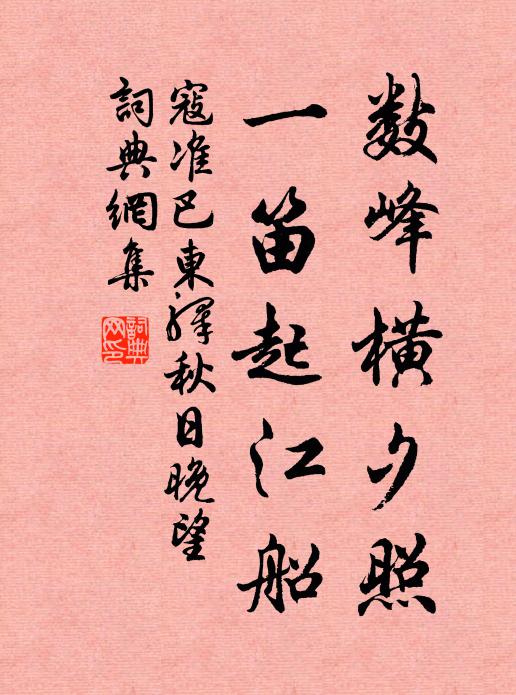 数峰橫夕照
一笛起江船
寇准巴東驛秋日晚望
詞典網集
詞典网印